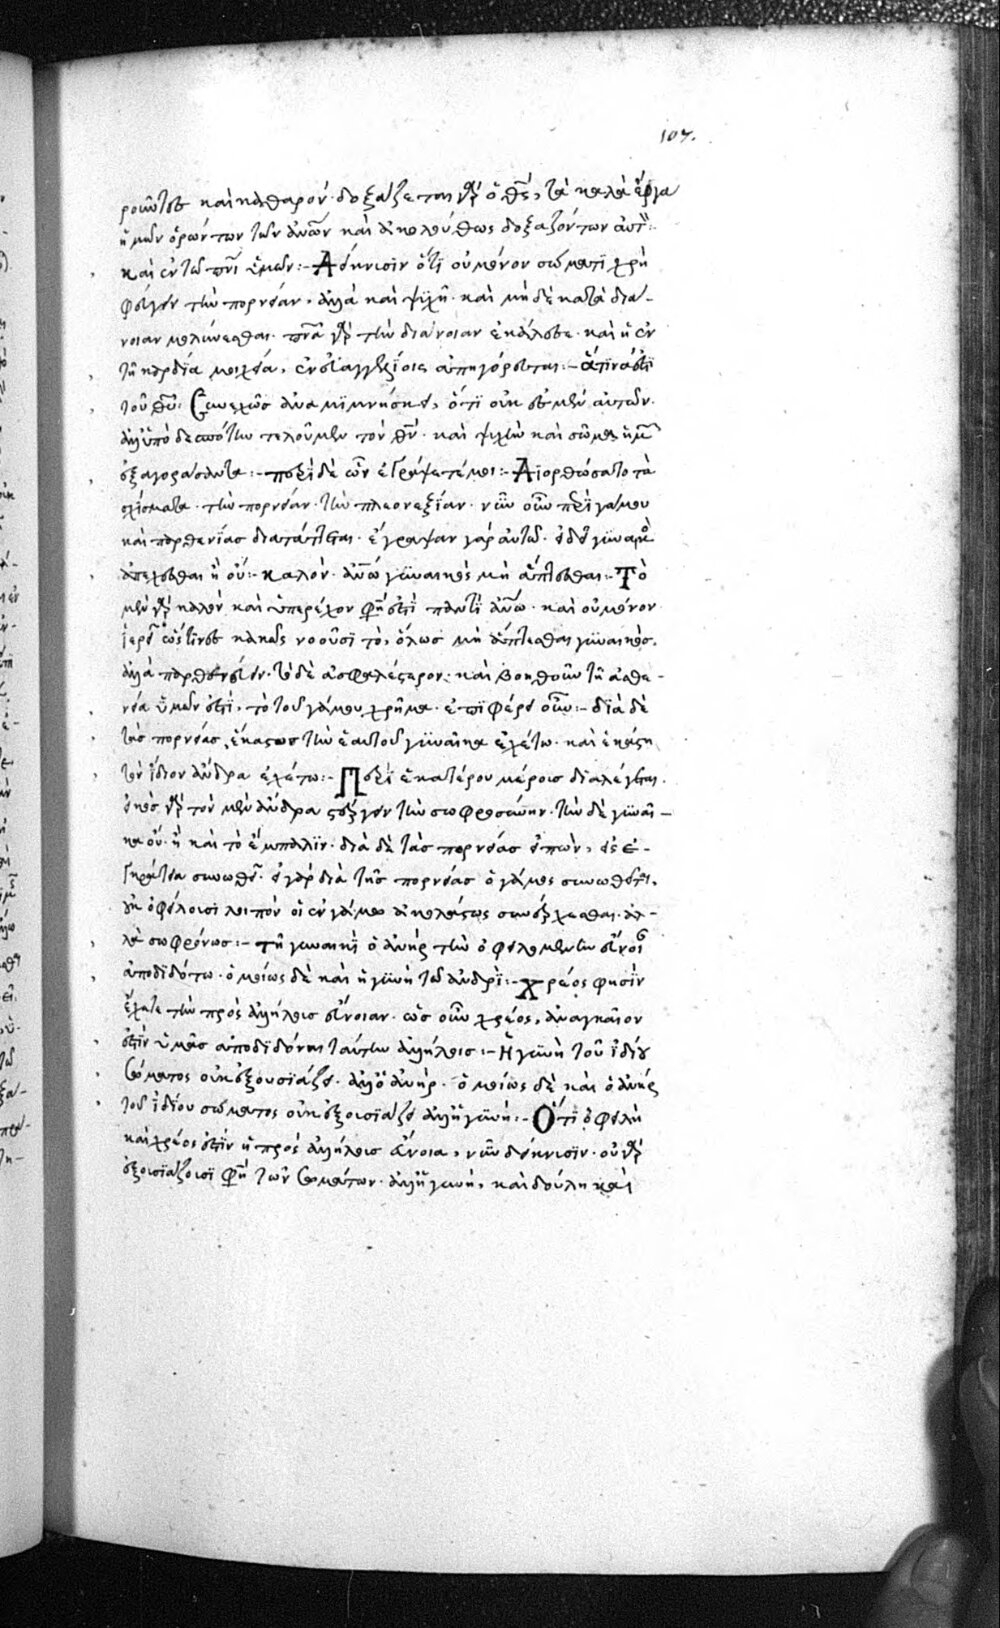 107.
ροῦντες καὶ καθαρόν· δοξάζεται γὰρ ὁ θς, τὰ καλὰ ἔργα
ἡμῶν ὁρώντων τῶν ἀνων καὶ ἀκολούθως δοξαζόντων αὐτ:
καὶ ἐν τῶ πνι ὑμῶν:- Δείκνυσιν ὅτι οὐ μόνον σώματι χρὴ
φεύγειν τὴν πορνείαν, ἀλλὰ καὶ ψυχῆ· καὶ μηδὲ κατὰ διά-
νοιαν μολύνεσθαι· πνα γὰρ τὴν διάνοιαν ἐκάλεσε· καὶ ἡ ἐν
τῆ καρδία μοιχεία, ἐν εὐαγγελίοις ἀπηγόρευται:- ἅτινά ἐστι
τοῦ θυ: Συνεχῶς ἀναμιμνήσκει, ὅτι οὐκ ἐσμὲν αὐτῶν·
ἀλλ' ὑπὸ δεσπότην τελοῦμεν τὸν θν· καὶ ψυχὴν καὶ σῶμα ἡμ
ἐξαγοράσαντα:- περὶ δὲ ὧν ἐγράψατέ μοι:- Διορθώσατο τὰ
σχίσματα· τὴν πορνείαν· τὴν πλεονεξίαν· νῦν οὖν περὶ γάμου
καὶ παρθενίας διατάττεται· ἔγραψαν γὰρ αὐτῶ· εἰ δεῖ γυναικὸς
ἀπέχεσθαι ἢ οὔ:- καλὸν· ἀνω γυναικὸς μὴ ἅπτεσθαι:- Τὸ
μὲν γὰρ καλὸν καὶ ὑπερέχον φησὶ παντὶ ἀνω· καὶ οὐ μόνον
ἱερεῖ ὥς τινες κακῶς νοοῦσι τὸ, ὅλως μὴ ἅπτεσθαι γυναικός·
ἀλλὰ παρθενεύειν· τὸ δὲ ἀσφαλέστερον· καὶ βοηθοῦν τῆ ἀσθε-
νεία ὑμῶν ἐστὶ, τὸ τοῦ γάμου χρῆμα· ἐπιφέρει οὖν:- διὰ δὲ
τὰς πορνείας, ἕκαστος τὴν ἑαυτοῦ γυναῖκα ἐχέτω· καὶ ἑκάστη
τὸν ἴδιον ἄνδρα ἐχέτω:- Περὶ ἑκατέρου μέρους διαλέγεται·
εἰκὸς γὰρ τὸν μὲν ἄνδρα στέργειν τὴν σωφροσύνην· τὴν δὲ γυναῖ-
κα οὔ· ἢ καὶ τὸ ἔμπαλιν· διὰ δὲ τὰς πορνείας εἰπὼν, εἰς ἐγ-
κράτεια συνωθεῖ· εἰ γὰρ διὰ τῆς πορνείας ὁ γάμος συνωθεῖται,
οὐκ ὀφείλουσι λοιπὸν οἱ ἐν γάμω ἀκολάστως συνέρχεσθαι· ἀλ-
λὰ σωφρόνως:- τῆ γυναικὶ ὁ ἀνὴρ τὴν ὀφειλομένην εὔνοι
ἀποδιδότω· ὁμοίως δὲ καὶ ἡ γυνὴ τῶ ἀνδρί:- Χρέος φησὶν
ἔχετε τὴν πρὸς ἀλλήλους εὔνοιαν· ὡς οὖν χρέος, ἀναγκαῖον
ἐστὶν ὑμᾶς ἀποδιδόναι ταύτην ἀλλήλοις:- Ἡ γυνὴ τοῦ ἰδίου
σώματος οὐκ ἐξουσιάζει· ἀλλ' ὁ ἀνήρ· ὁμοίως δὲ καὶ ὁ ἀνὴρ
τοῦ ἰδίου σώματος οὐκ ἐξουσιάζει ἀλλ' ἡ γυνή:- Ὅτι ὀφειλὴ
καὶ χρέος ἐστὶν ἡ πρὸς ἀλλήλους εὔνοια, νῦν δείκνυσιν· οὐ γὰρ
ἐξουσιάζουσι φησὶ τῶν σωμάτων· ἀλλ' ἡ γυνή, καὶ δούλη καὶ